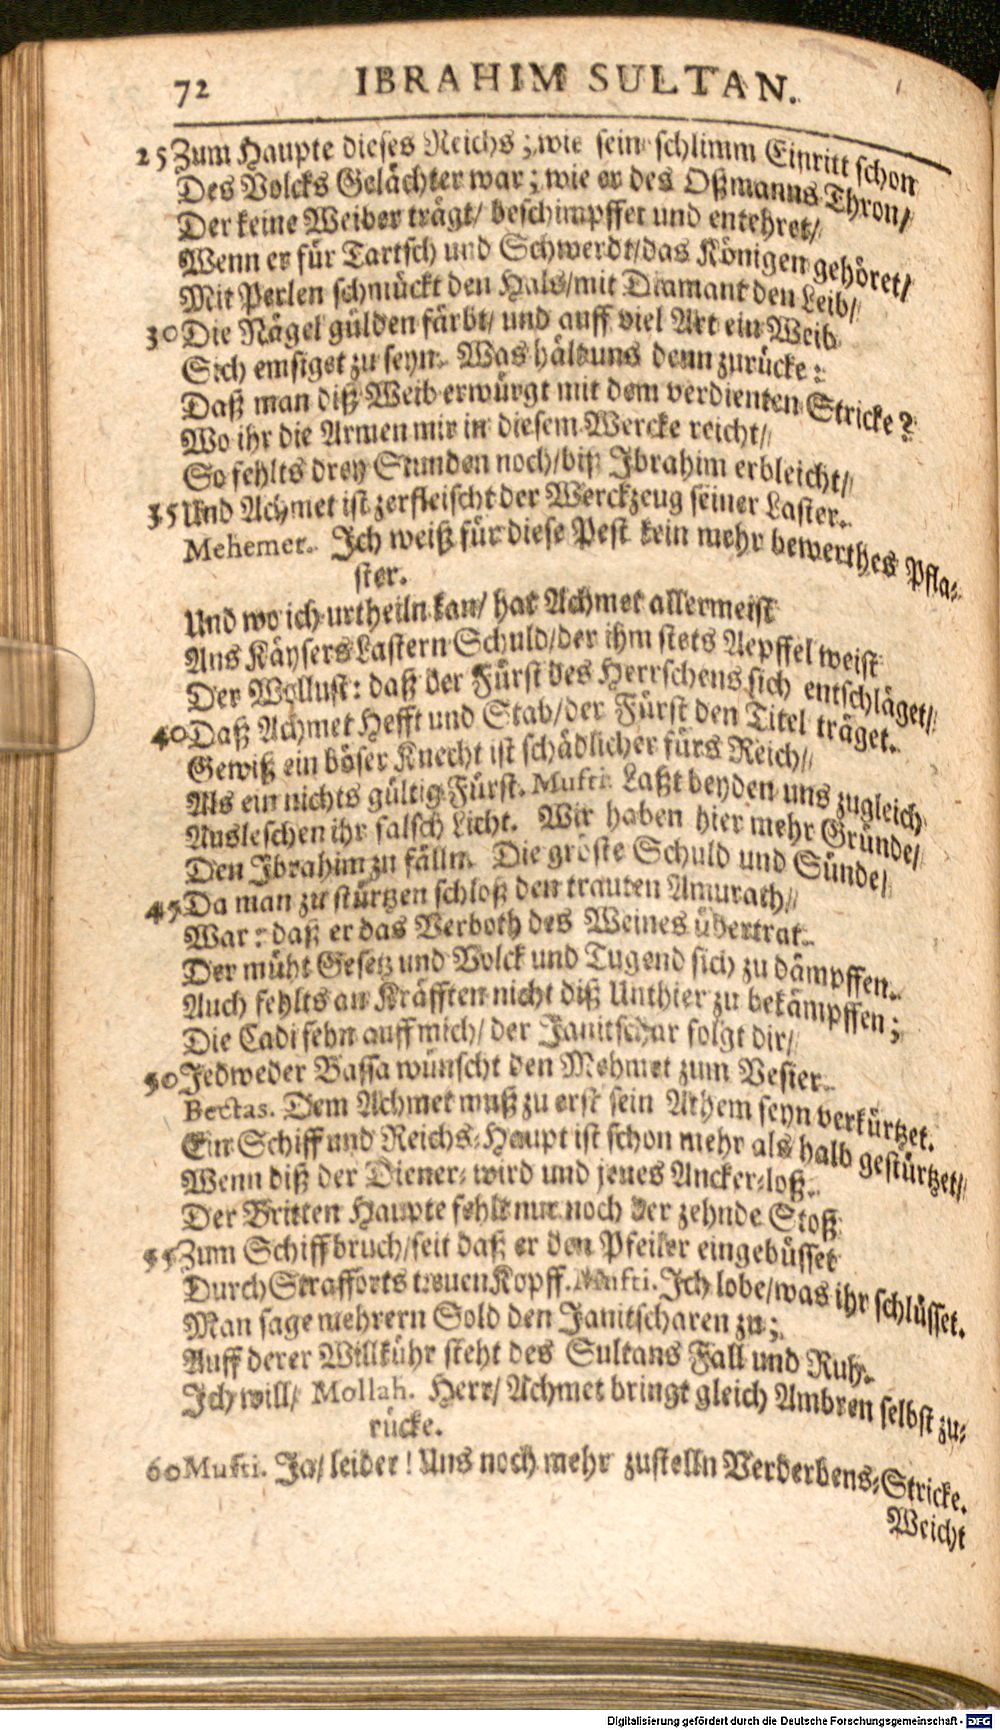 72 IBRAHIM SULTAN.
25 Zum Haupte dieses Reichs; wie sein schlimm Einritt schon
Des Volcks Gelächter war; wie er des Oßmanns Thron/
Der keine Weiber trägt/ beschimpffet und entehret/
Wenn er für Tartsch und Schwerdt/das Königen gehöret/
Mit Perlen schmückt den Hals/mit Diamant den Leib/
30 Die Nägel gülden färbt/ und auff viel Art ein Weib
Sich emsiget zu seyn. Was hält uns denn zurücke:
Daß man diß Weib erwürgt mit dem verdienten Stricke?
Wo ihr die Armen mir in diesem Wercke reicht/
So fehlts drey Stunden noch/biß Ibrahim erbleicht/
35 Und Achmet ist zerfleischt der Werckzeug seiner Laster.
Mehemet. Ich weiß für diese Pest kein mehr bewerthes Pfla-
ster.
Und wo ich urtheiln kan/ hat Achmet allermeist
Ans Käysers Lastern Schuld/der ihm stets Aepffel weist
Der Wollust: daß der Fürst des Herrschens sich entschläget/
40 Daß Achmet Hefft und Stab/der Fürst den Titel träget.
Gewiß ein böser Knecht ist schädlicher fürs Reich/
Als ein nichts gültig Fürst. Mufti. Laßt beyden uns zugleich
Ausleschen ihr falsch Licht. Wir haben hier mehr Gründe/
Den Ibrahim zu fälln. Die gröste Schuld und Sünde/
45 Da man zu stürtzen schloß den trauten Amurath/
War: daß er das Verboth des Weines übertrat.
Der müht Gesetz und Volck und Tugend sich zu dämpffen.
Auch fehlts an Kräfften nicht diß Unthier zu bekämpffen;
Die Cadi sehn auff mich/ der Janitschar folgt dir/
50 Jedweder Bassa wünscht den Mehmet zum Vesier.
Bectas. Dem Achmet muß zu erst sein Athem seyn verkürtzet.
Ein Schiff und Reichs-Haupt ist schon mehr als halb gestürtzet/
Wenn diß der Diener- wird und jenes Ancker-loß.
Der Britten Haupte fehlt nur noch der zehnde Stoß
55 Zum Schiffbruch/seit daß er den Pfeiler eingebüsset
Durch Strafforts treuen Kopff. Mufti. Ich lobe/was ihr schlüsset.
Man sage mehrern Sold den Janitscharen zu;
Auff derer Willkühr steht des Sultans Fall und Ruh.
Ich will/ Mollah. Herr/ Achmet bringt gleich Ambren selbst zu-
rücke.
60 Mufti. Ja/ leider! Uns noch mehr zustelln Verderbens-Stricke.
Weicht
Digitalisierung gefördert durch die Deutsche Forschungsgemeinschaft - DFG